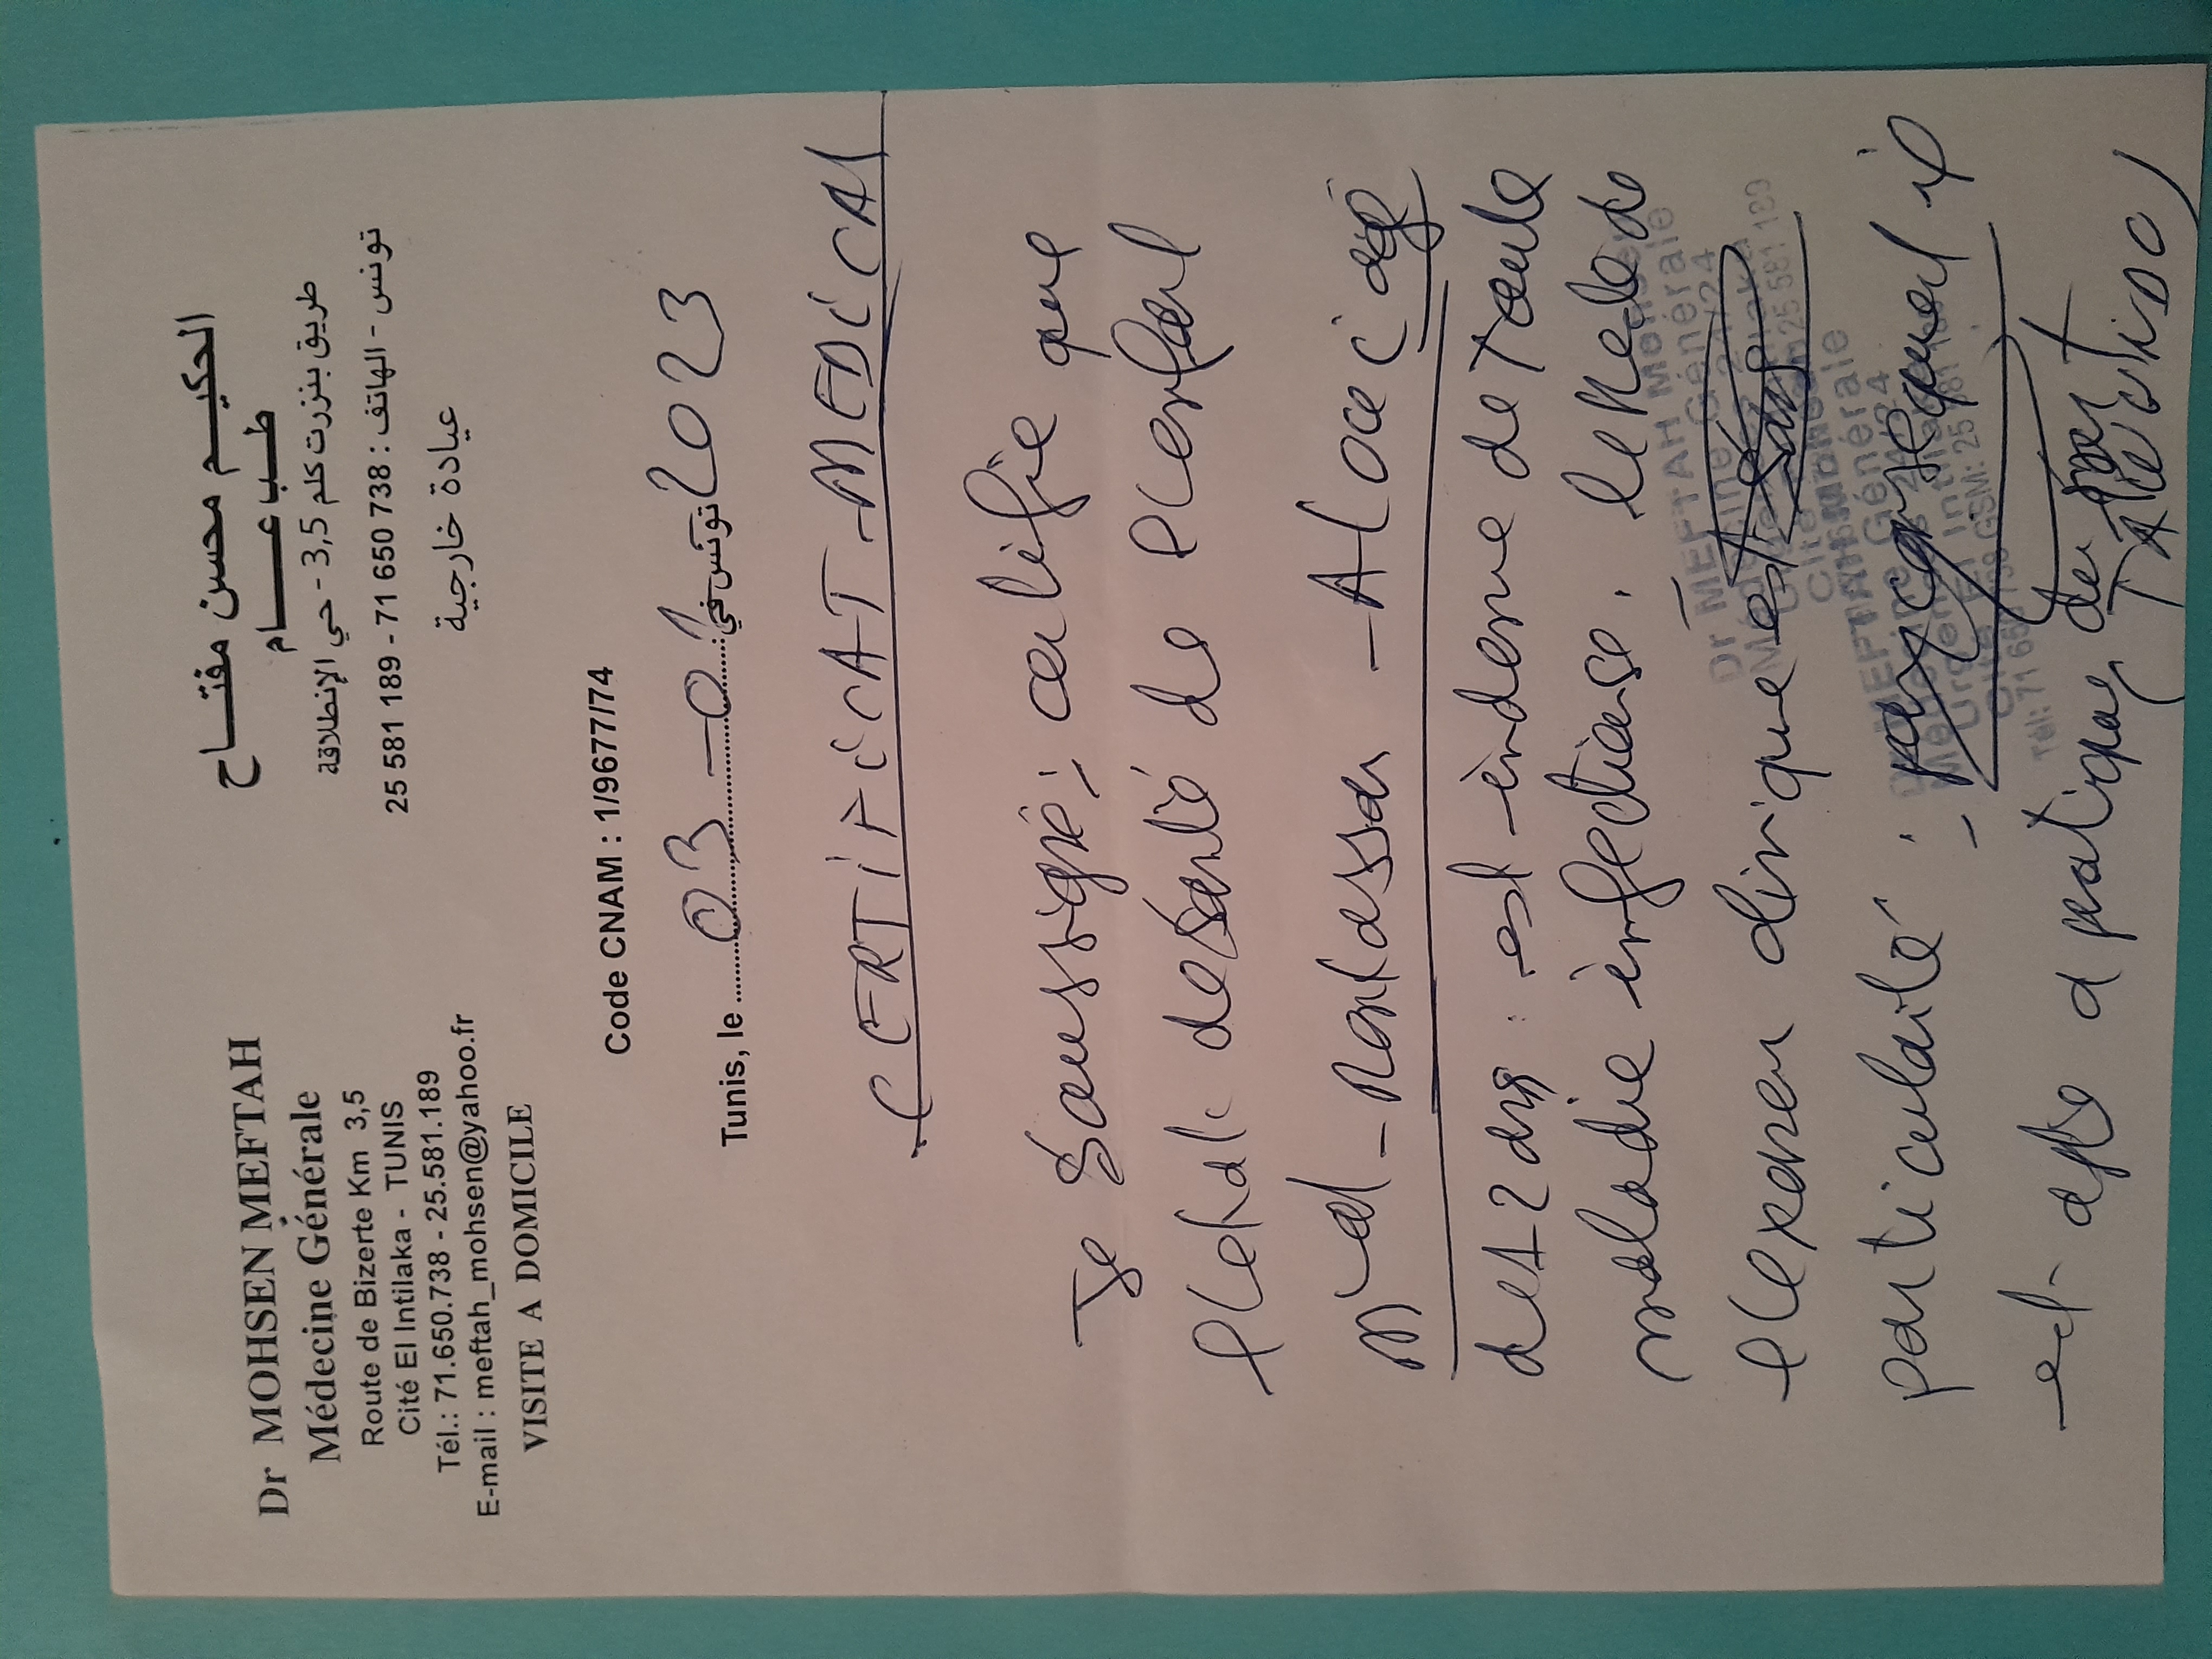 Dr MOHSEN MEFTAH
Médecine Générale
Route de Bizerte Km 3,5
Cité El Intilaka - TUNIS
Tél.: 71.650.738 - 25.581.189
E-mail : meftah_mohsen@yahoo.fr
VISITE A DOMICILE
الحكيم محسن مفتاح
طب عام
طريق بنزرت كلم 3,5 - حي الإنطلاقة
تونس - الهاتف : 738 650 71 - 189 581 25
عيادة خارجية
Code CNAM : 1/9677/74
Tunis, le 03-01 تونس في 2023
CERTIFICAT-MEDICAL
Je Soussigné, certifie que
l'état de santé de l'enfant
agé
de 12 ans est indemne de toute
maladie infectieuse. le
l'examen clinique est sans
particularité. par conséquent il
est apte a pratiquer du sport
Dr MEFTAH Mohsen
Médecine Générale
Tél: 71 650 738 GSM: 25 581 189